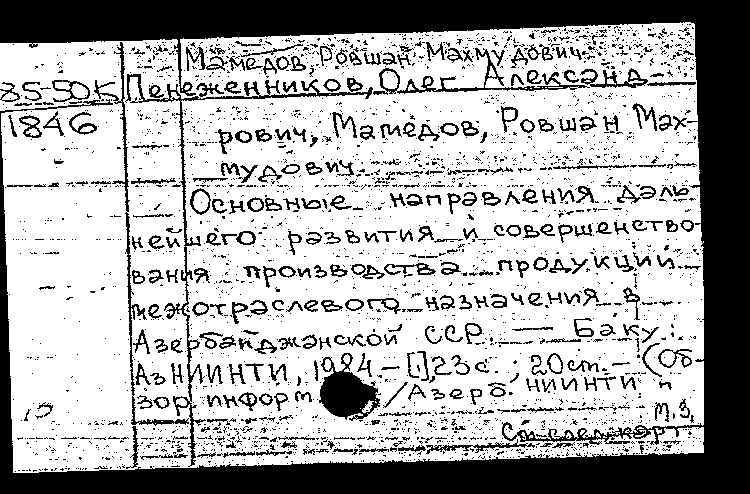 Мамедов, Ровшан Махмудович
85-50К Пенеженников, Олег Александ-
1846
рович, Мамедов, Ровшан Мах-
мудович.
Основные направления даль-
нейшего развития и совершенство-
вания производства продукции
межотраслевого назначения в
Азербайджанской ССР. — Баку:
АзНИИНТИ, 1984. – [1], 23 с.; 20 см. – (Об-
зор. информ. /Азерб. НИИНТИ
т. 3,
См. след. карт.